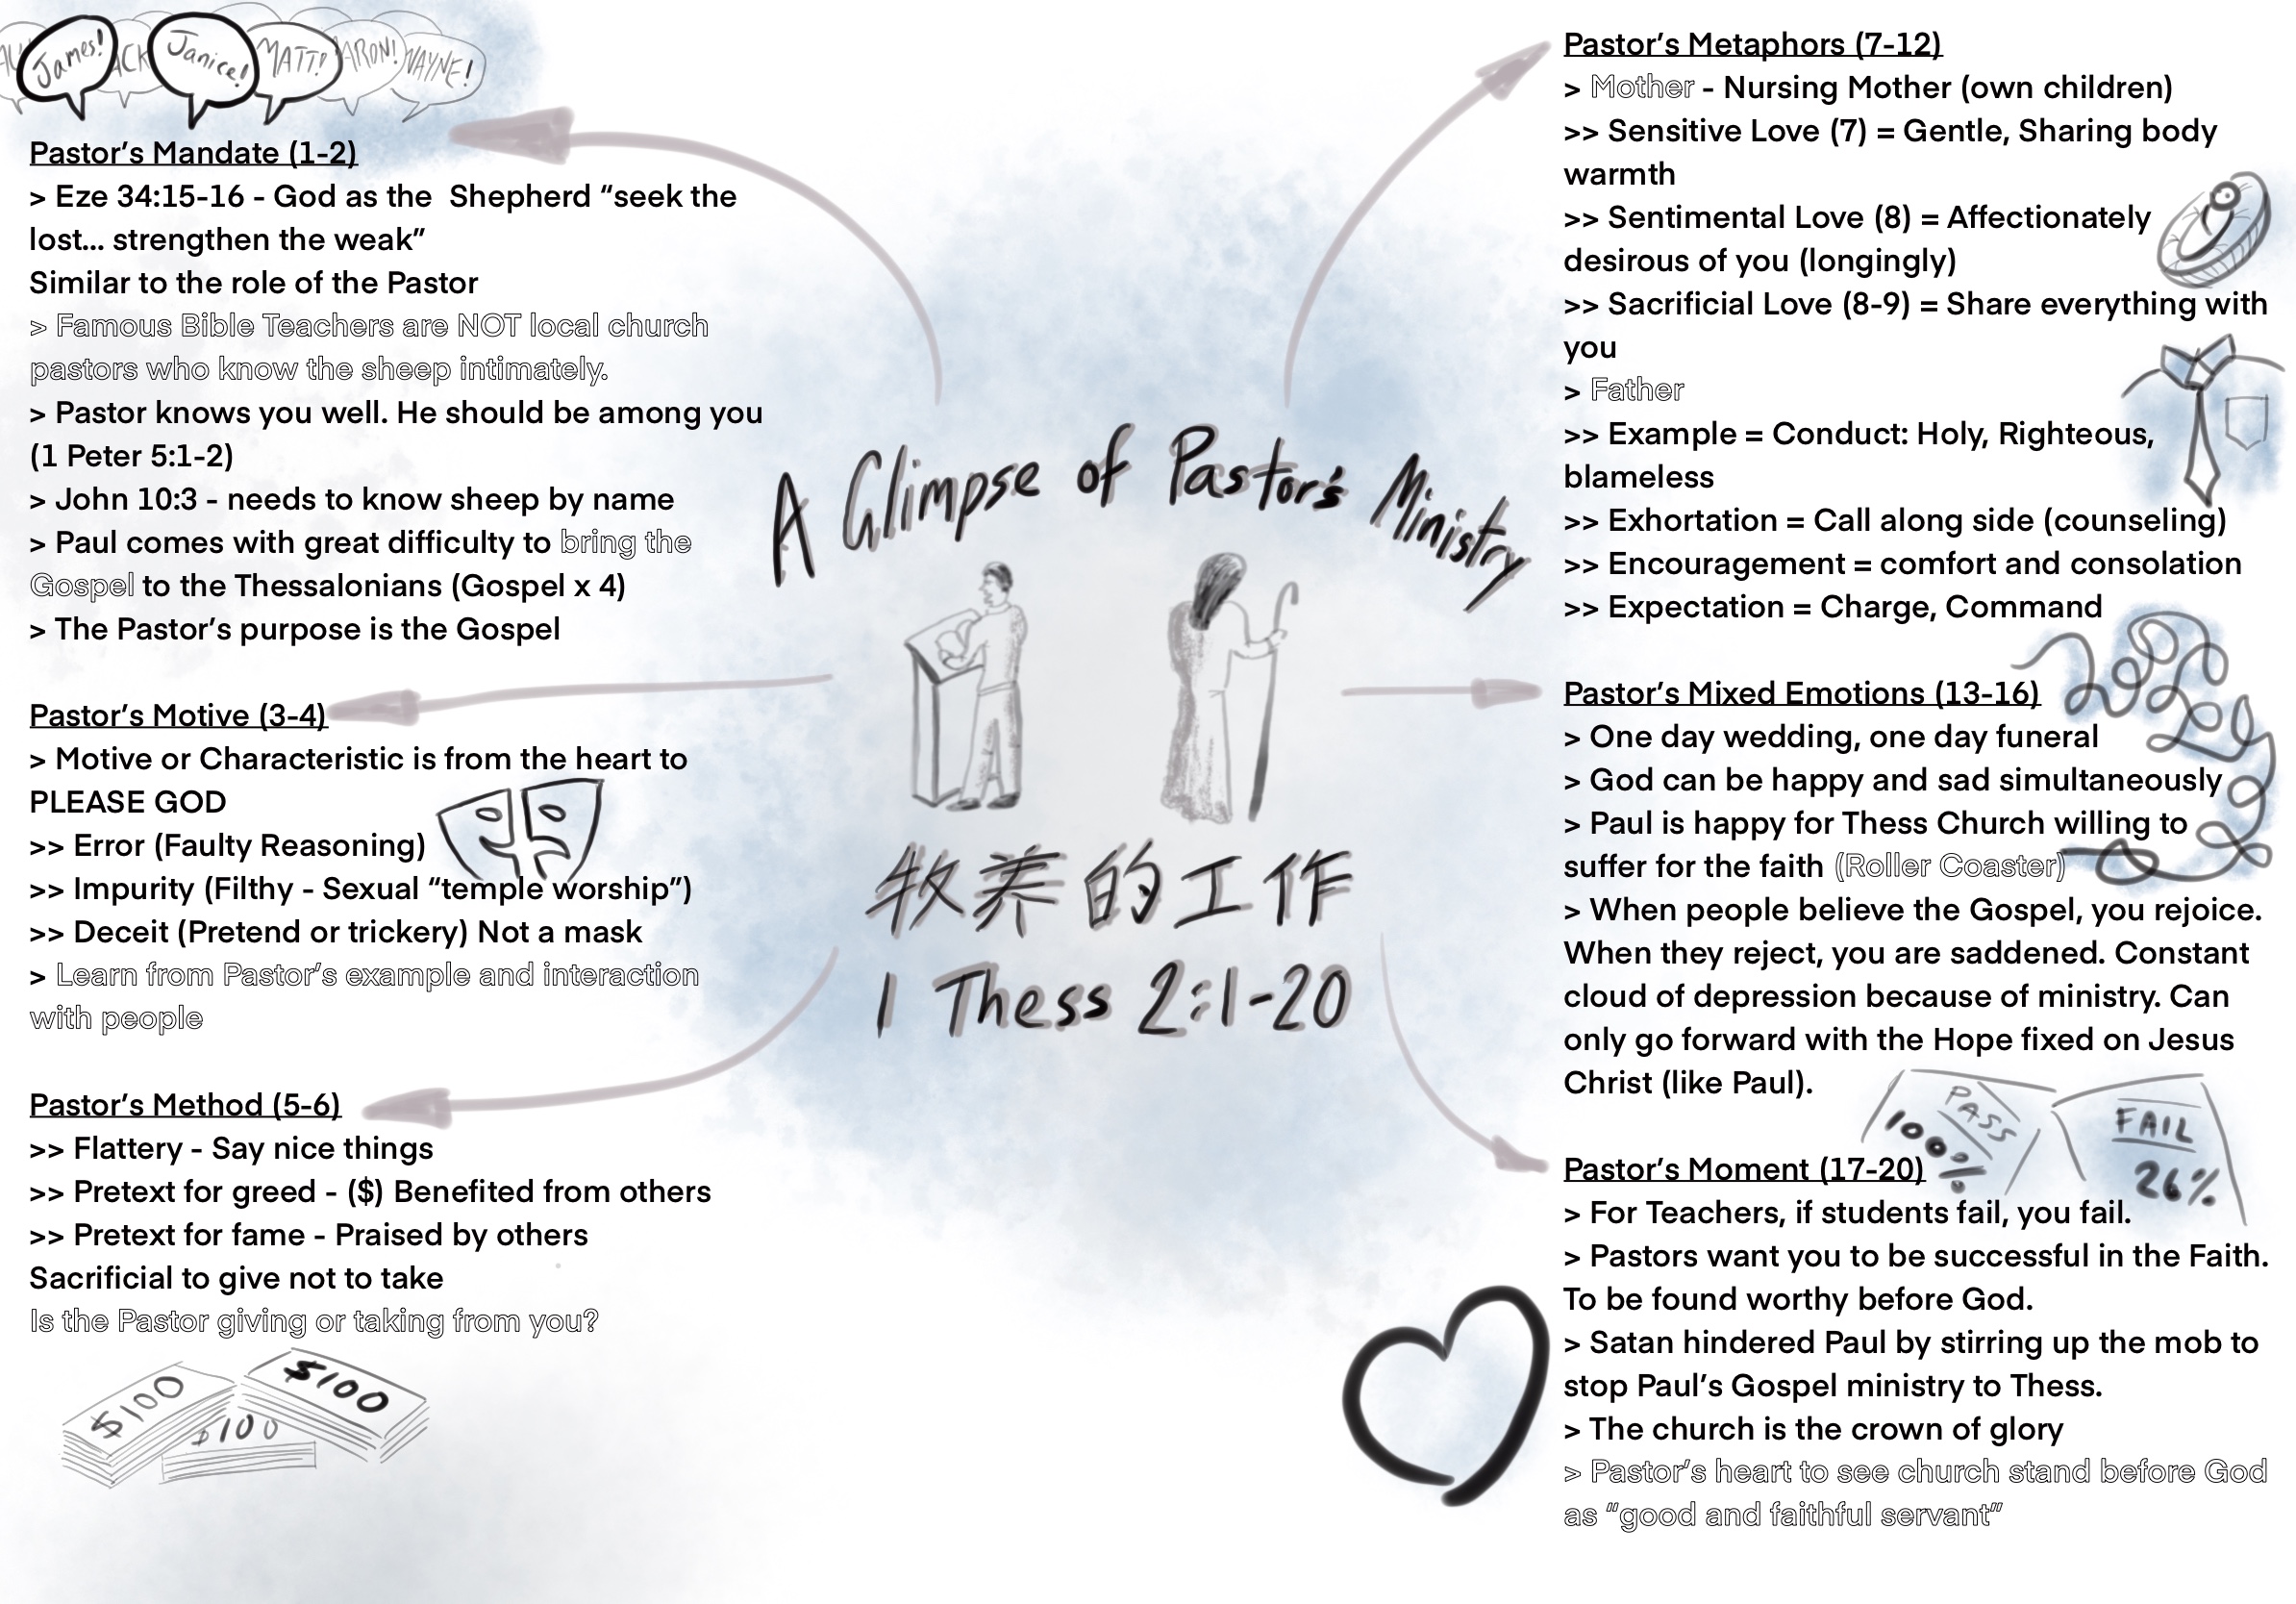 James!
ACK
Janice!
MATT!
ARON!
WAYNE!
Pastor's Mandate (1-2)
> Eze 34:15-16 - God as the  Shepherd “seek the
lost... strengthen the weak”
Similar to the role of the Pastor
> Famous Bible Teachers are NOT local church
pastors who know the sheep intimately.
> Pastor knows you well. He should be among you
(1 Peter 5:1-2)
> John 10:3 - needs to know sheep by name
> Paul comes with great difficulty to bring the
Gospel to the Thessalonians (Gospel x 4)
> The Pastor's purpose is the Gospel
Pastor's Motive (3-4)
> Motive or Characteristic is from the heart to
PLEASE GOD
>> Error (Faulty Reasoning)
>> Impurity (Filthy - Sexual “temple worship”)
>> Deceit (Pretend or trickery) Not a mask
> Learn from Pastor's example and interaction
with people
Pastor's Method (5-6)
>> Flattery - Say nice things
>> Pretext for greed - ($) Benefited from others
>> Pretext for fame - Praised by others
Sacrificial to give not to take
Is the Pastor giving or taking from you?
$100
$100
$100
A Glimpse of Pastor's Ministry
牧养的工作
1 Thess 2:1-20
Pastor's Metaphors (7-12)
> Mother - Nursing Mother (own children)
>> Sensitive Love (7) = Gentle, Sharing body
warmth
>> Sentimental Love (8) = Affectionately
desirous of you (longingly)
>> Sacrificial Love (8-9) = Share everything with
you
> Father
>> Example = Conduct: Holy, Righteous,
blameless
>> Exhortation = Call along side (counseling)
>> Encouragement = comfort and consolation
>> Expectation = Charge, Command
Pastor's Mixed Emotions (13-16)
> One day wedding, one day funeral
> God can be happy and sad simultaneously
> Paul is happy for Thess Church willing to
suffer for the faith (Roller Coaster)
> When people believe the Gospel, you rejoice.
When they reject, you are saddened. Constant
cloud of depression because of ministry. Can
only go forward with the Hope fixed on Jesus
Christ (like Paul).
PASS
100%
FAIL
26%
Pastor's Moment (17-20)
> For Teachers, if students fail, you fail.
> Pastors want you to be successful in the Faith.
To be found worthy before God.
> Satan hindered Paul by stirring up the mob to
stop Paul's Gospel ministry to Thess.
> The church is the crown of glory
> Pastor's heart to see church stand before God
as “good and faithful servant”